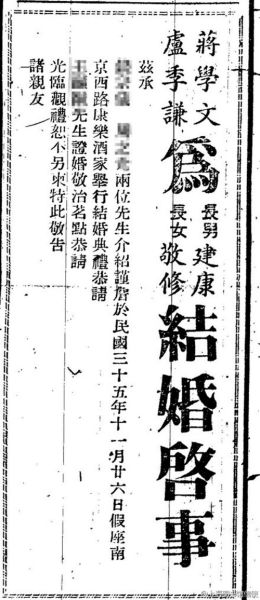 蔣學文 盧季謙 為 長男建康 長女敬修 結婚啓事
茲承
兩位先生介紹謹詹於民國三十五年十一月廿六日假座南
京西路康樂酒家舉行結婚典禮恭請
先生證婚敬治茗點恭請
光臨觀禮恕不另柬特此敬告
諸親友